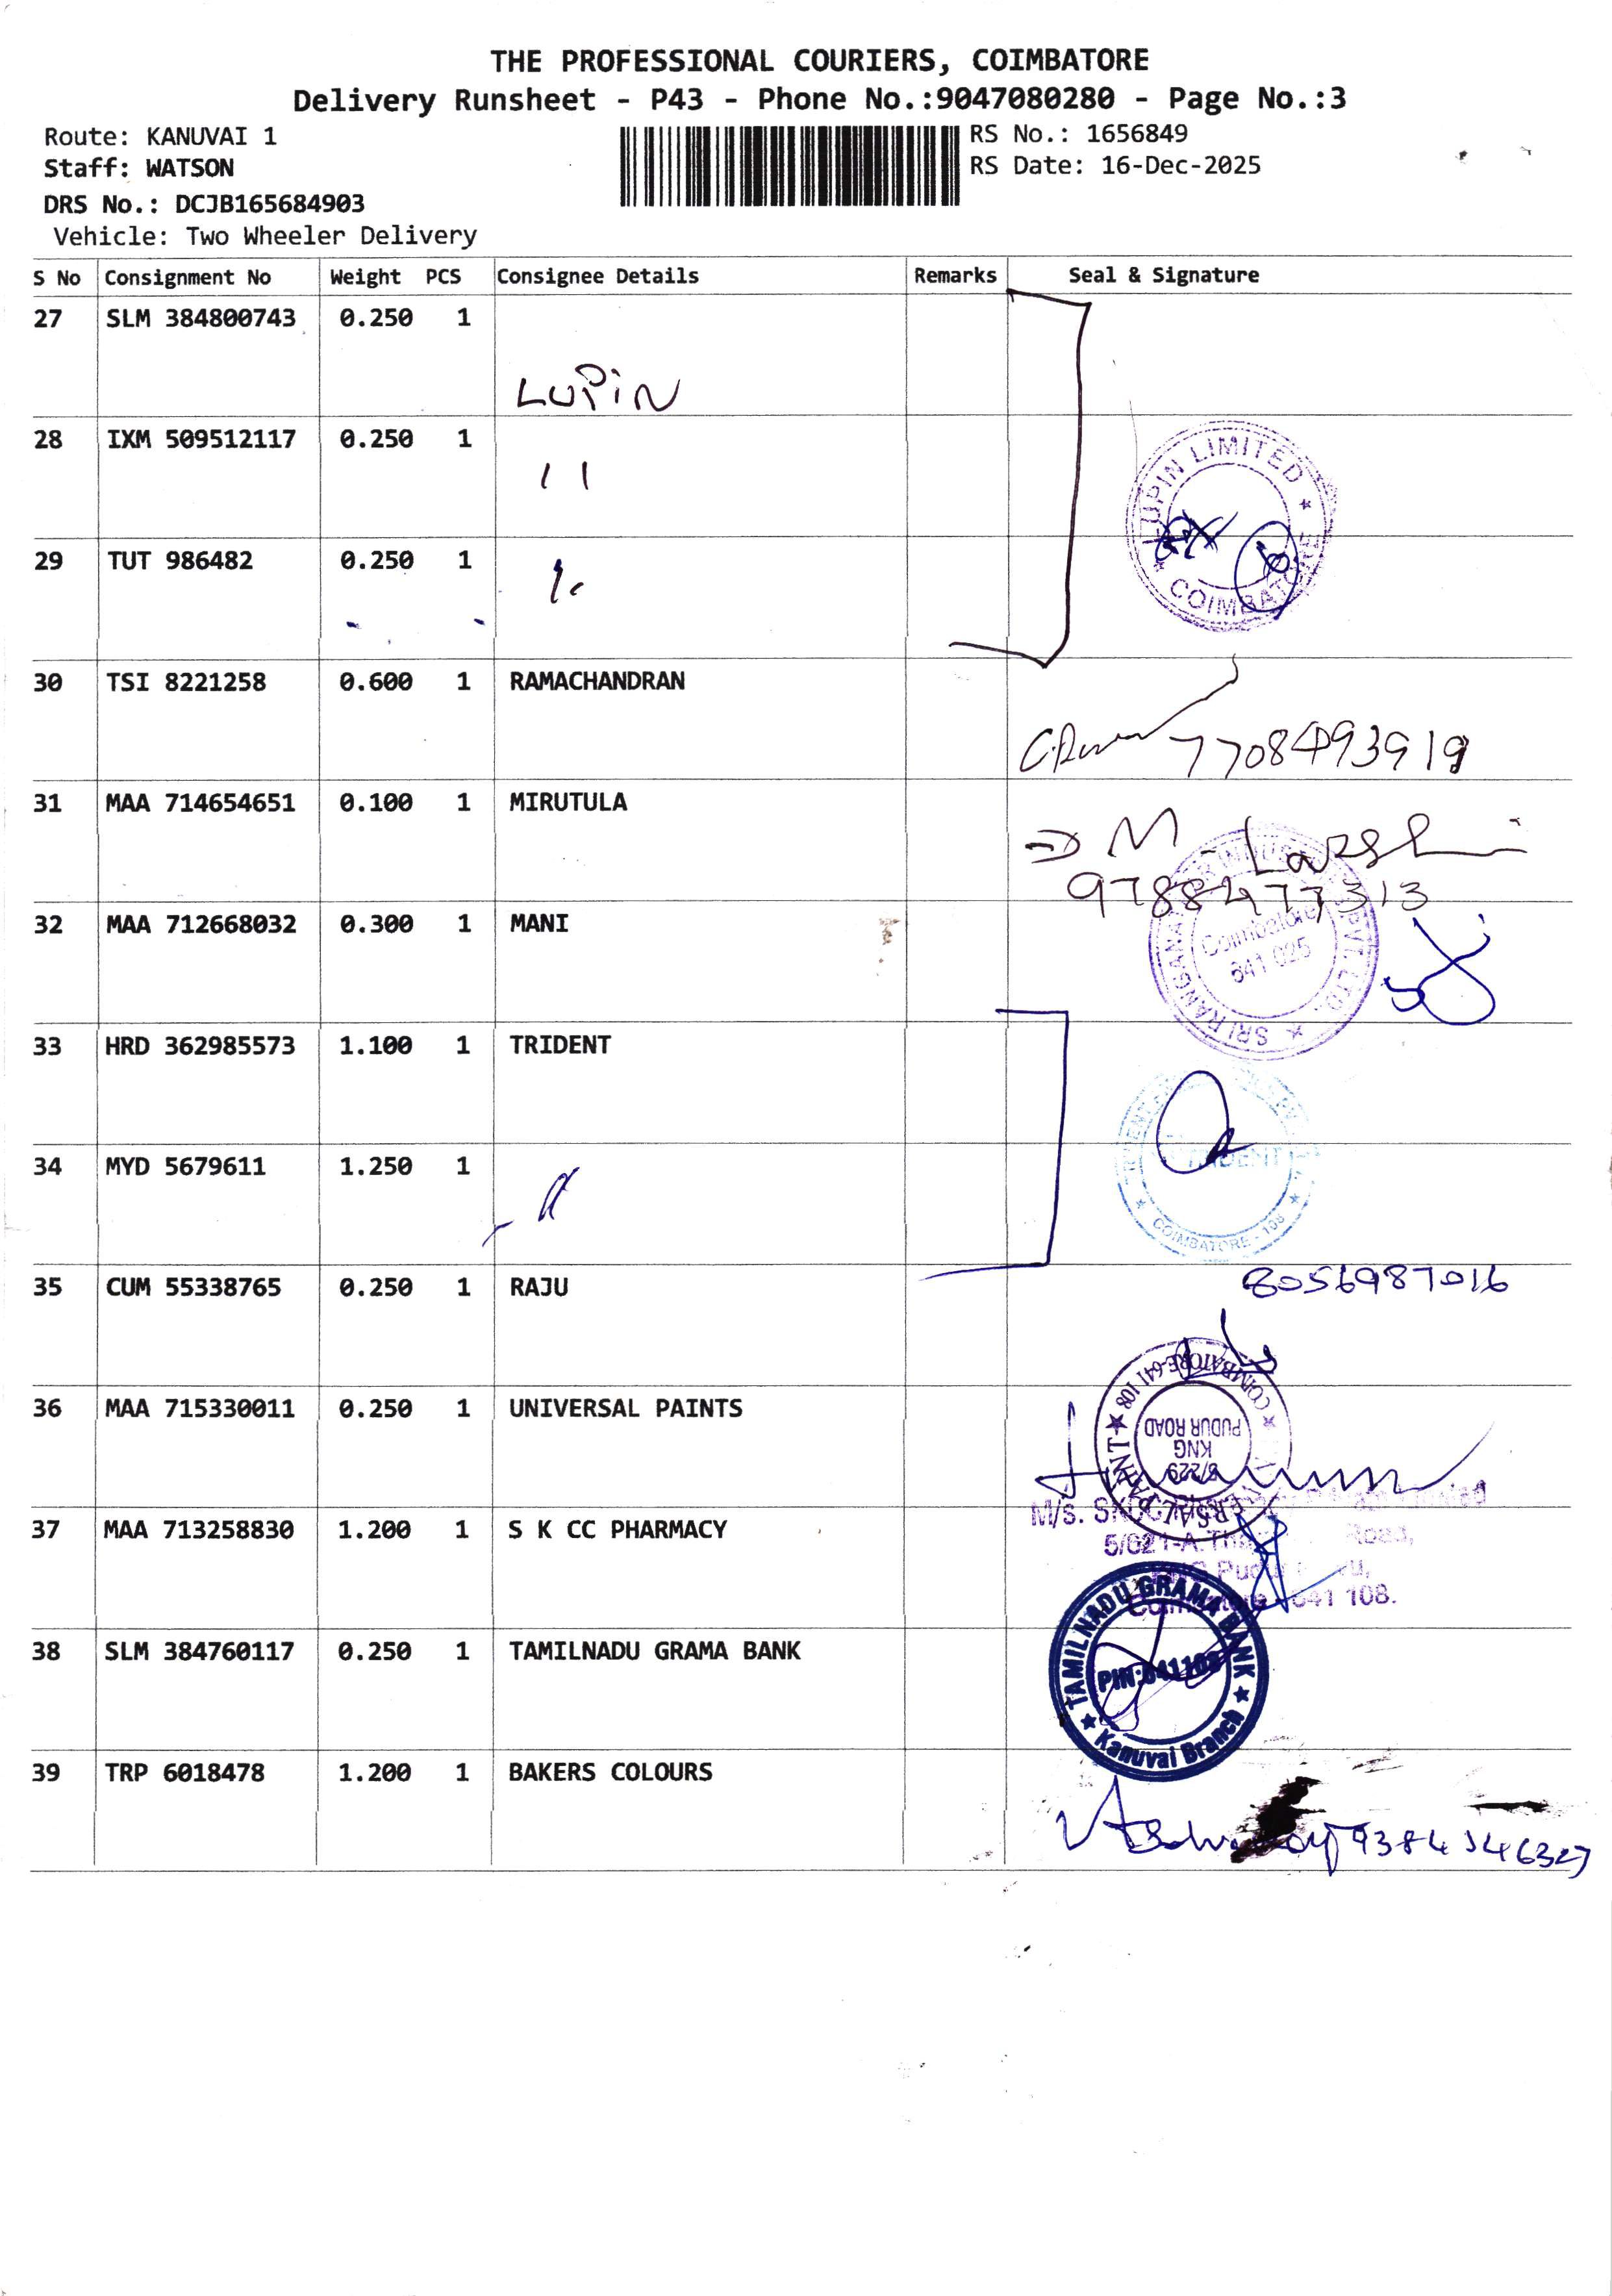 THE PROFESSIONAL COURIERS, COIMBATORE
Delivery Runsheet - P43 - Phone No.:9047080280 - Page No.:3
Route: KANUVAI 1
RS No.: 1656849
Staff: WATSON
RS Date: 16-Dec-2025
DRS No.: DCJB165684903
Vehicle: Two Wheeler Delivery
S No Consignment No Weight PCS Consignee Details Remarks Seal & Signature
27 SLM 384800743 0.250 1
LUPIN
28 IXM 509512117 0.250 1
11
LUPIN LIMITED
COIMBATORE
29 TUT 986482 0.250 1
30 TSI 8221258 0.600 1 RAMACHANDRAN
7708493919
31 MAA 714654651 0.100 1 MIRUTULA
M
9788477313
32 MAA 712668032 0.300 1 MANI
Coimbatore
641 025
SRI RANGANA PVT. LTD.
33 HRD 362985573 1.100 1 TRIDENT
34 MYD 5679611 1.250 1
TRIDENT
COIMBATORE - 108
35 CUM 55338765 0.250 1 RAJU
8056987016
COIMBATORE-641 108
36 MAA 715330011 0.250 1 UNIVERSAL PAINTS
8/229
KNG
PUDUR ROAD
37 MAA 713258830 1.200 1 S K CC PHARMACY
M/s.
5/621-A.
Road,
641 108.
38 SLM 384760117 0.250 1 TAMILNADU GRAMA BANK
TAMILNADU GRAMA BANK
PIN:641108
Kanuvai Branch
39 TRP 6018478 1.200 1 BAKERS COLOURS